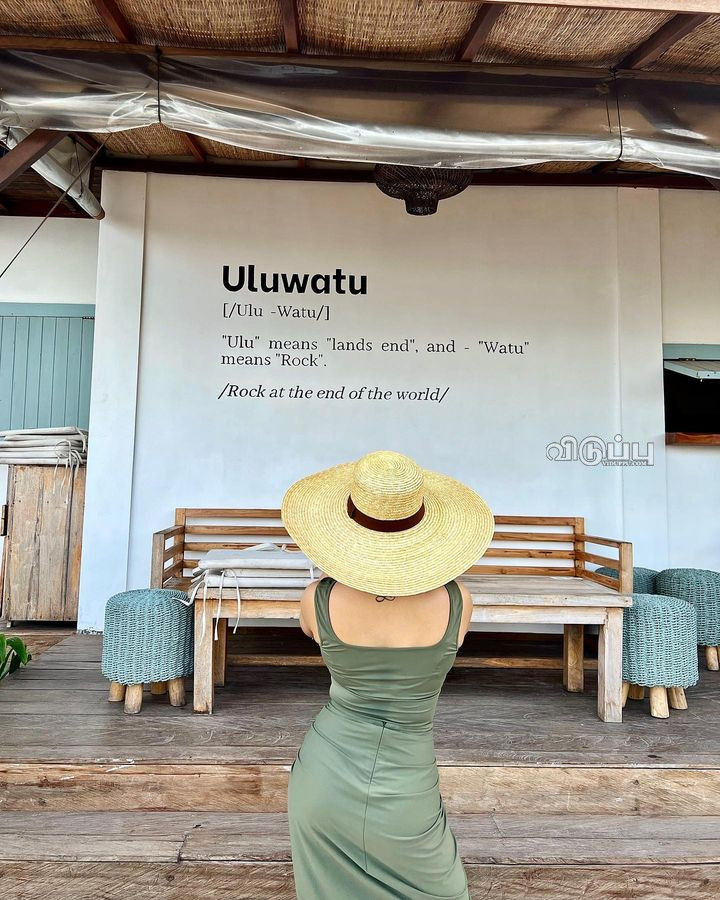 Uluwatu
[/Ulu -Watu/]
"Ulu" means "lands end", and - "Watu"
means "Rock".
/Rock at the end of the world/
விடுப்பு
VIDUPPU.COM